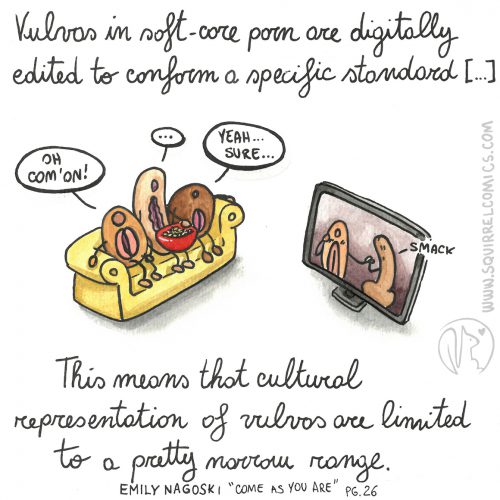 Vulvas in soft-core porn are digitally
edited to conform a specific standard [...]
OH
COM'ON!
...
YEAH...
SURE...
SMACK
WWW.SQUIRRELCOMICS.COM
This means that cultural
representation of vulvas are limited
to a pretty narrow range.
EMILY NAGOSKI "COME AS YOU ARE" PG.26